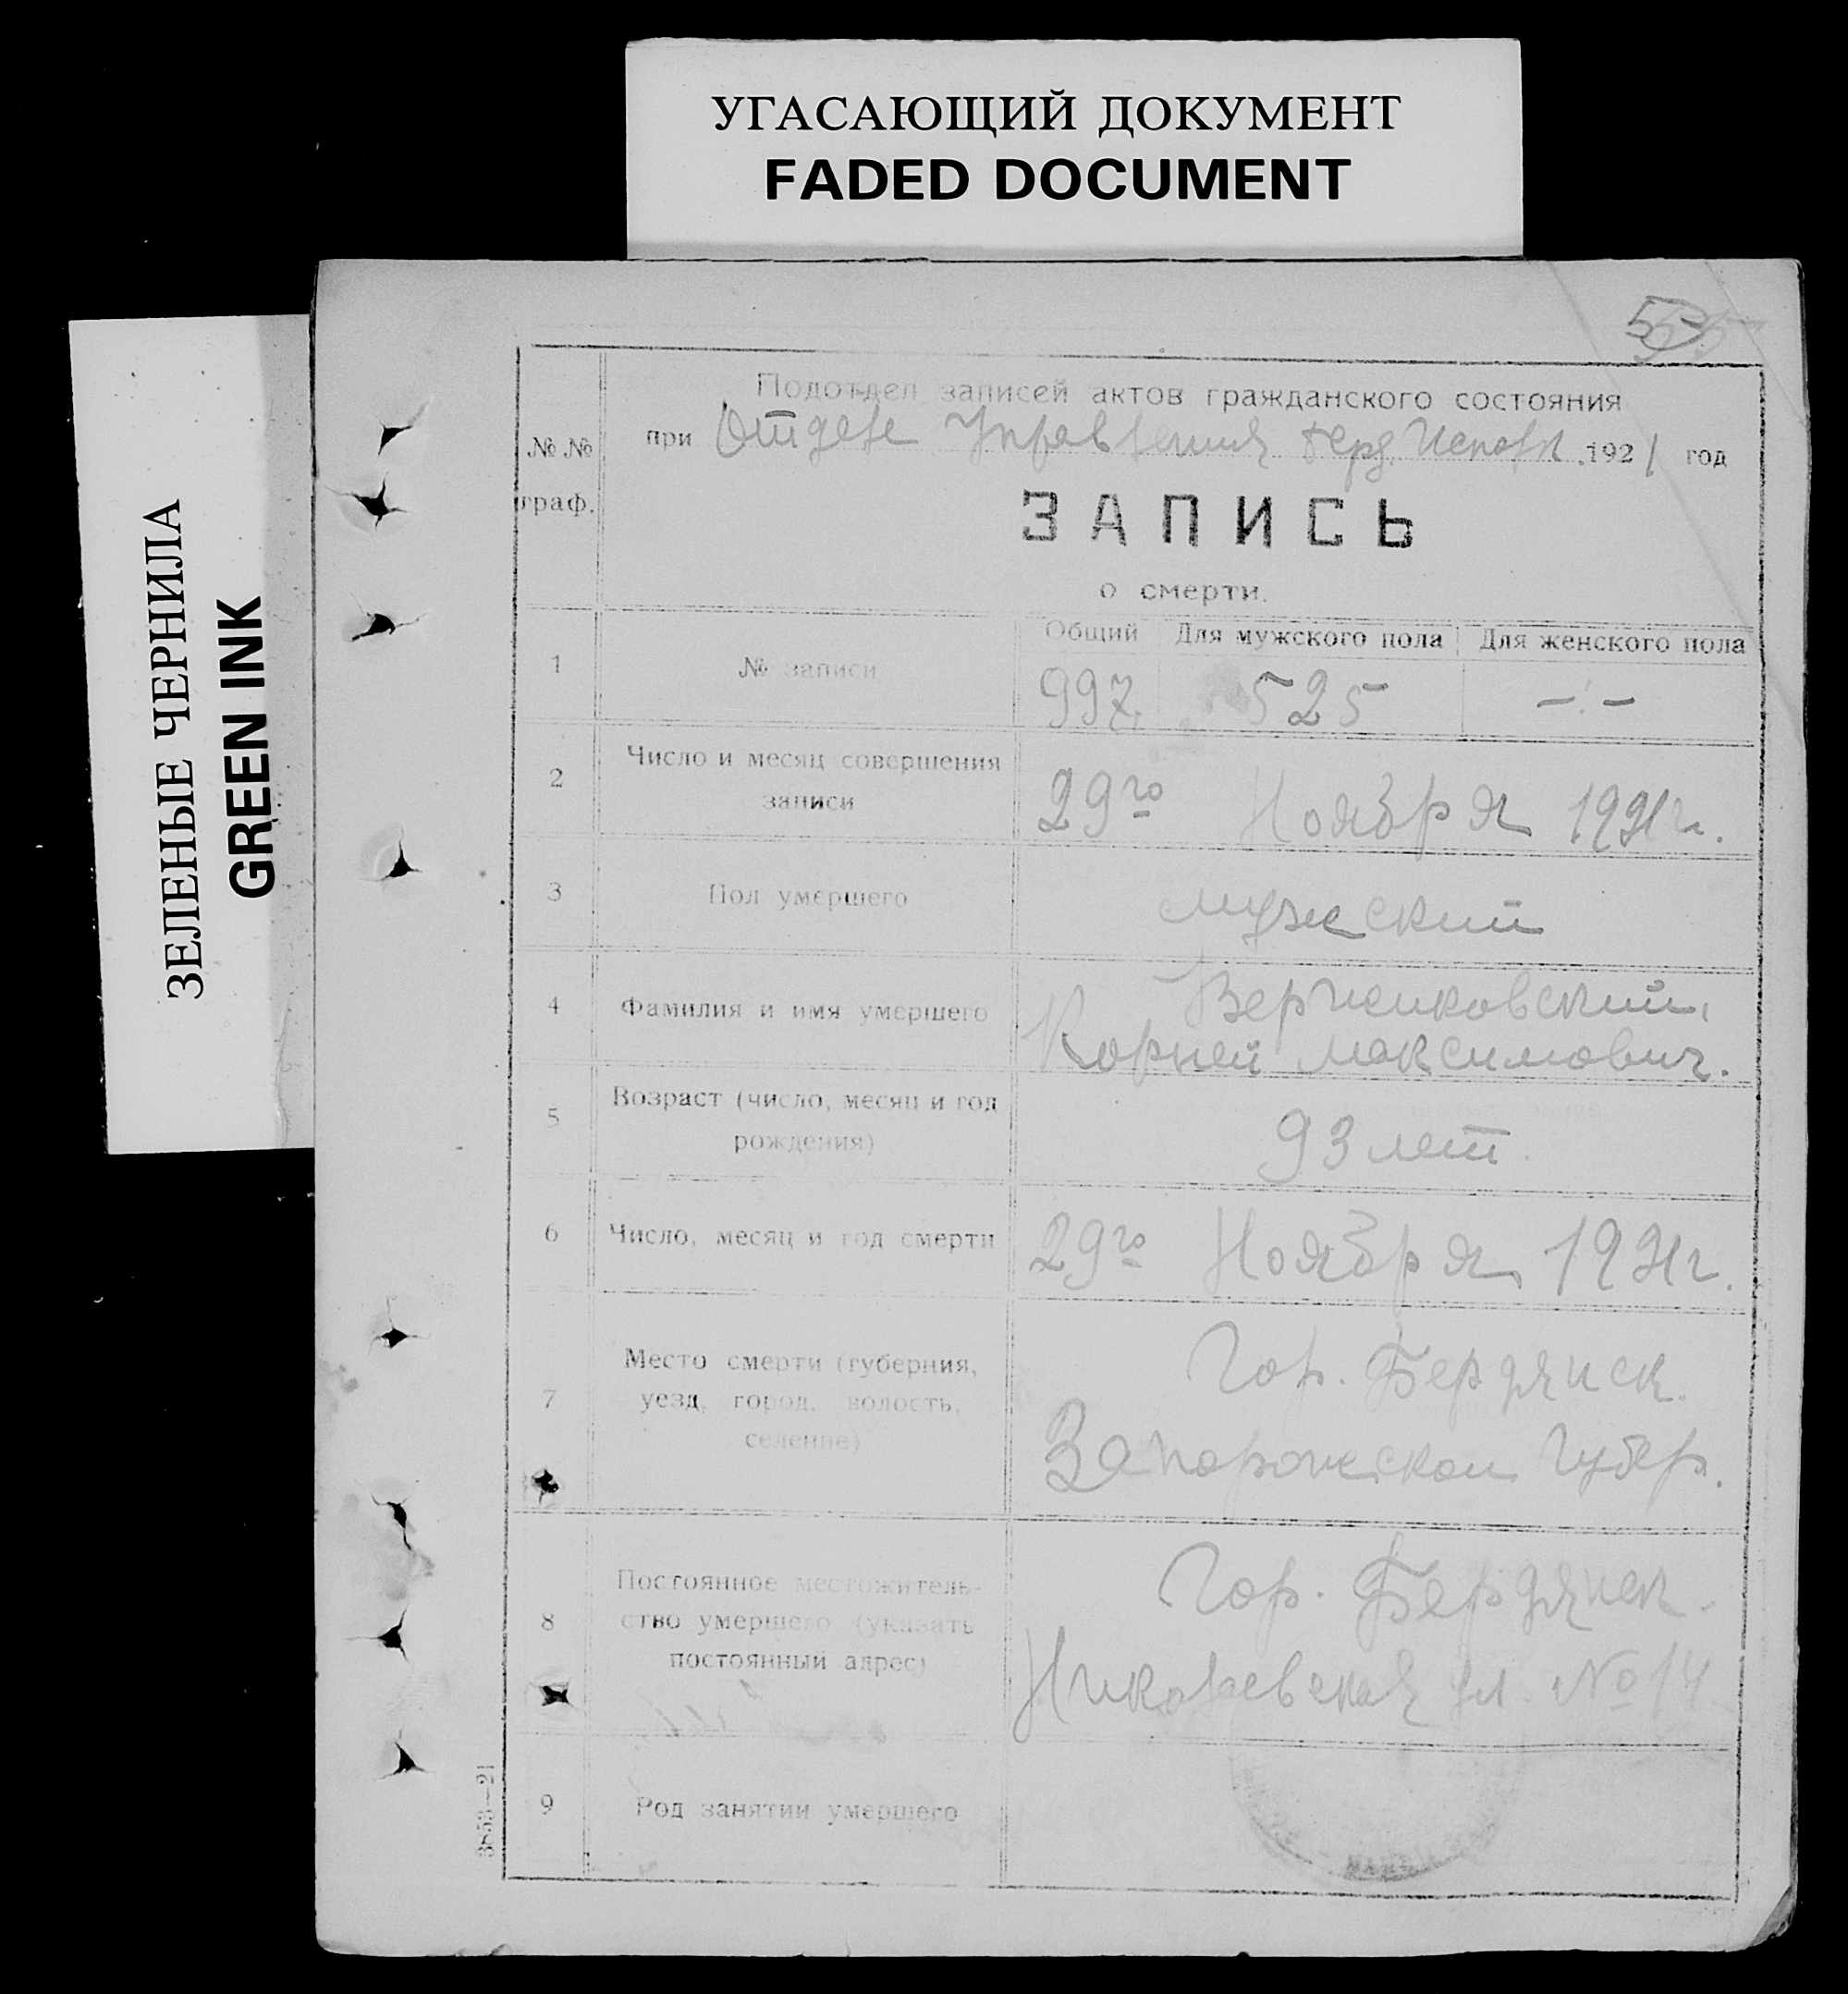 УГАСАЮЩИЙ ДОКУМЕНТ
FADED DOCUMENT
ЗЕЛЕНЫЕ ЧЕРНИЛА
GREEN INK
№ № граф.
Подотдел записей актов гражданского состояния
при Отделе Управления Берд. Исполк. 1921 год
ЗАПИСЬ
о смерти.
Общий Для мужского пола Для женского пола
1 № записи 997. 525 — : —
2 Число и месяц совершения
записи
29го Ноября 1921г.
3 Пол умершего мужский
4 Фамилия и имя умершего
Вержиковский,
Корней Максимович.
5 Возраст (число, месяц и год
рождения)
93 лет.
6 Число, месяц и год смерти 29го Ноября 1921г.
7 Место смерти (губерния,
уезд, город, волость,
селение)
Гор. Бердянск.
Запорожской Губер.
8 Постоянное местожитель-
ство умершего (указать
постоянный адрес)
Гор. Бердянск.
Николаевская ул. № 14
9 Род занятий умершего